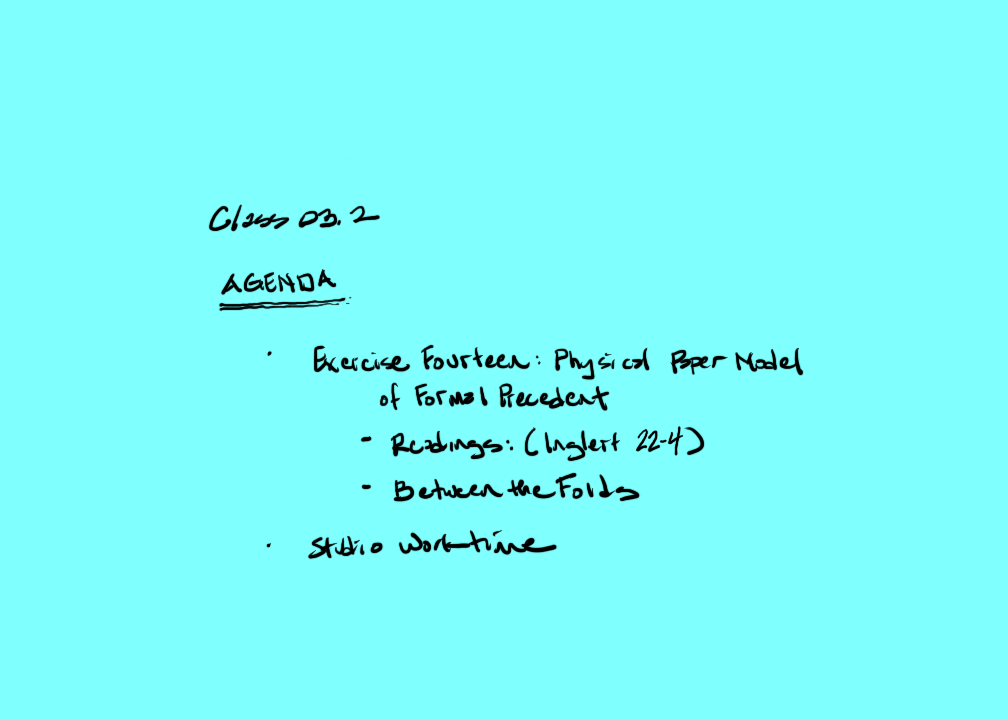 Class 03.2
AGENDA
· Exercise Fourteen: Physical Paper Model
of Formal Precedent
- Readings: (Inglert 22-4)
- Between the Folds
· Studio Work-time